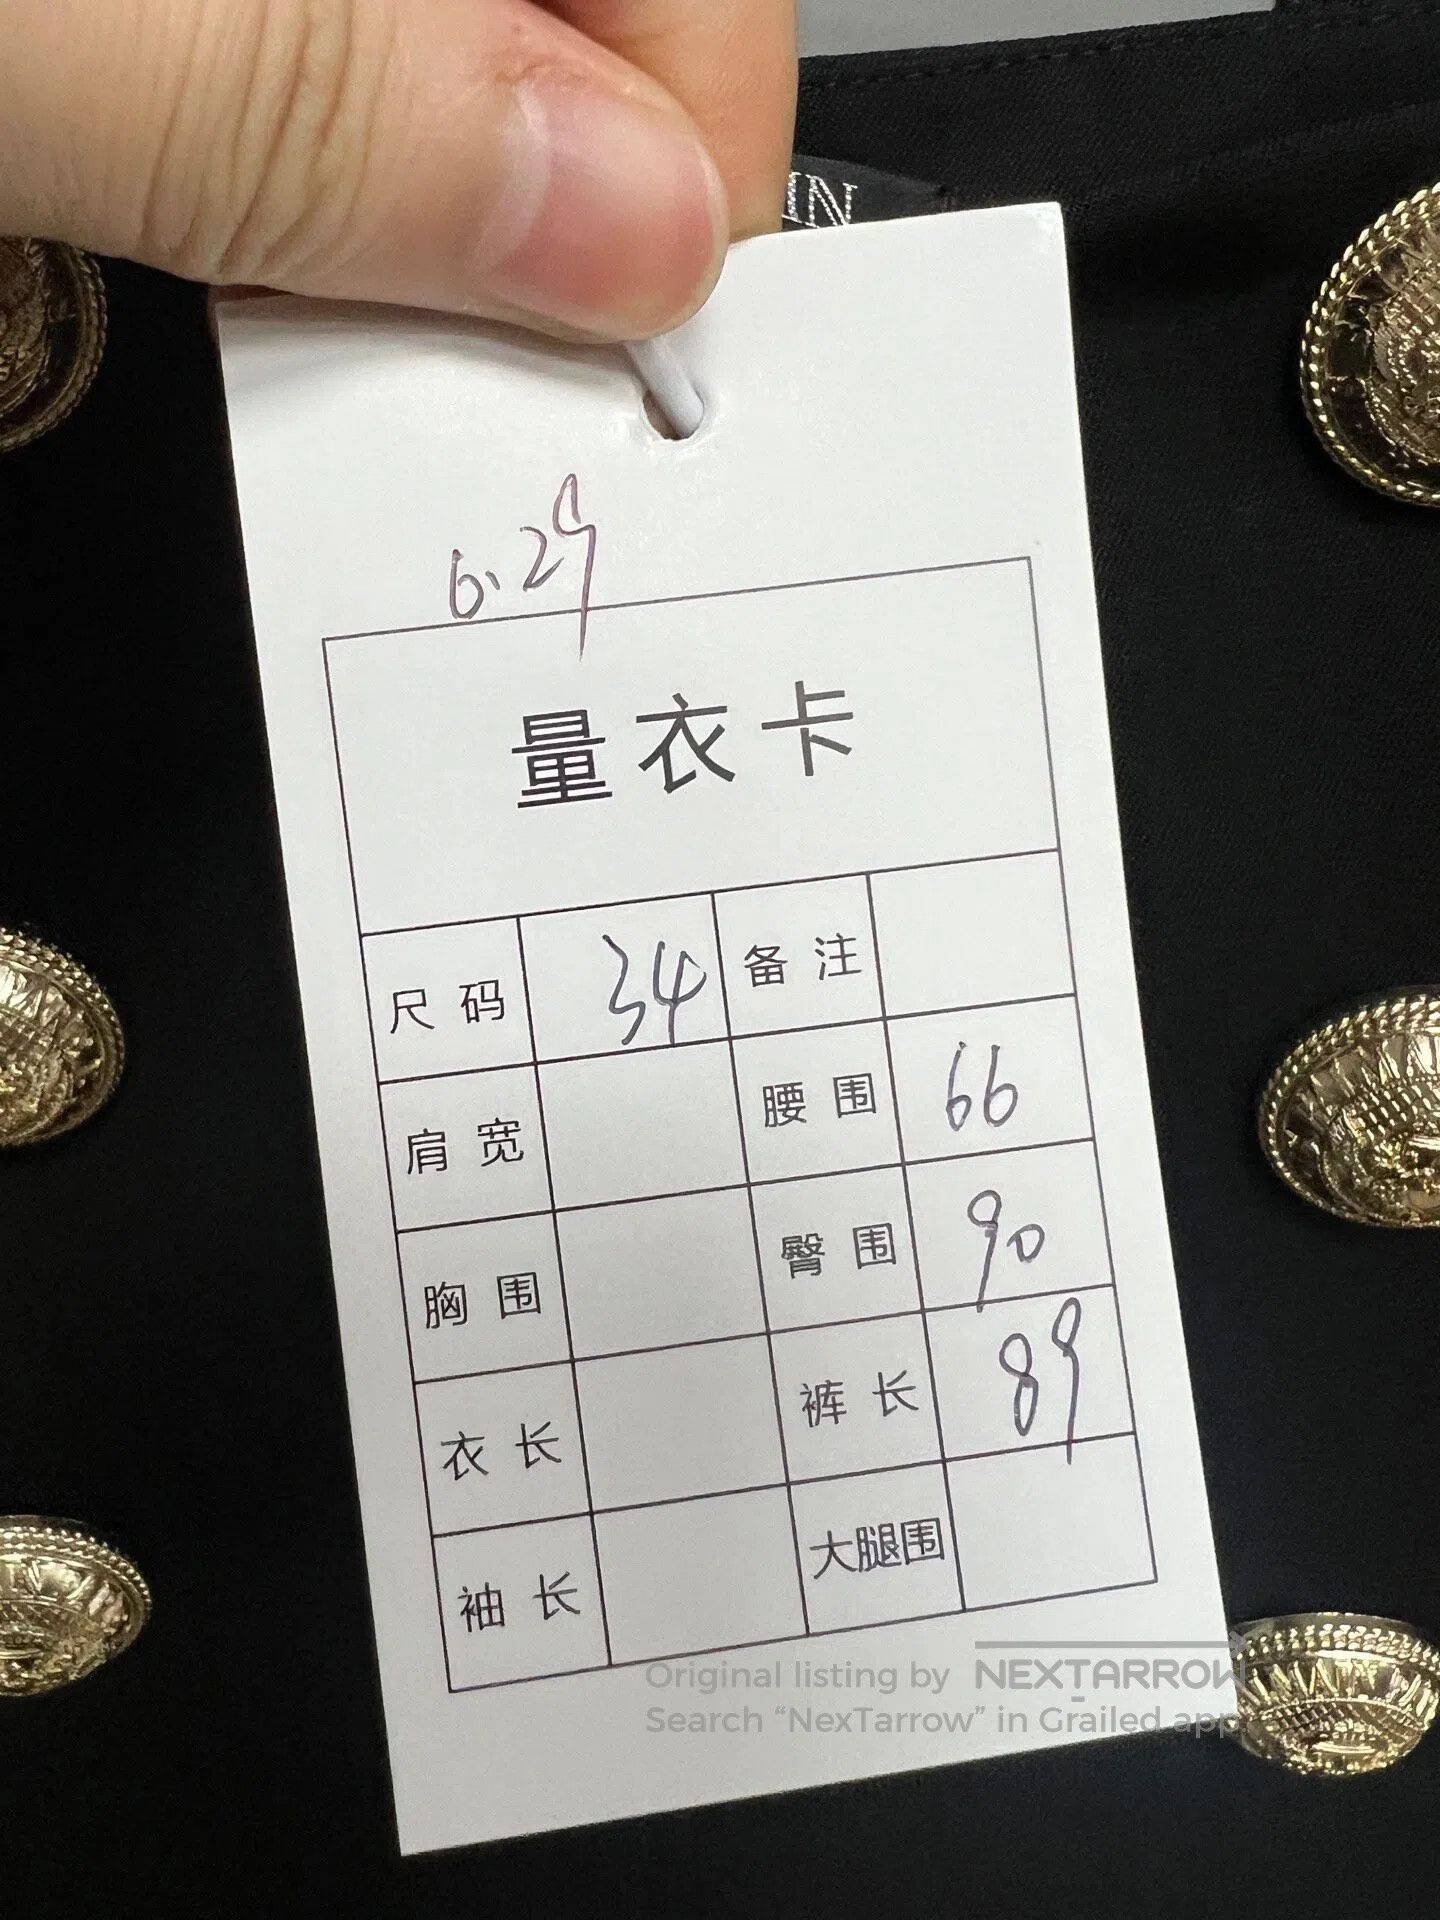 6.29
量衣卡
尺码 34 备注
肩宽 腰围 66
胸围 臀围 90
衣长 裤长 89
袖长 大腿围
Original listing by NEXTARROW
Search “NexTarrow” in Grailed app